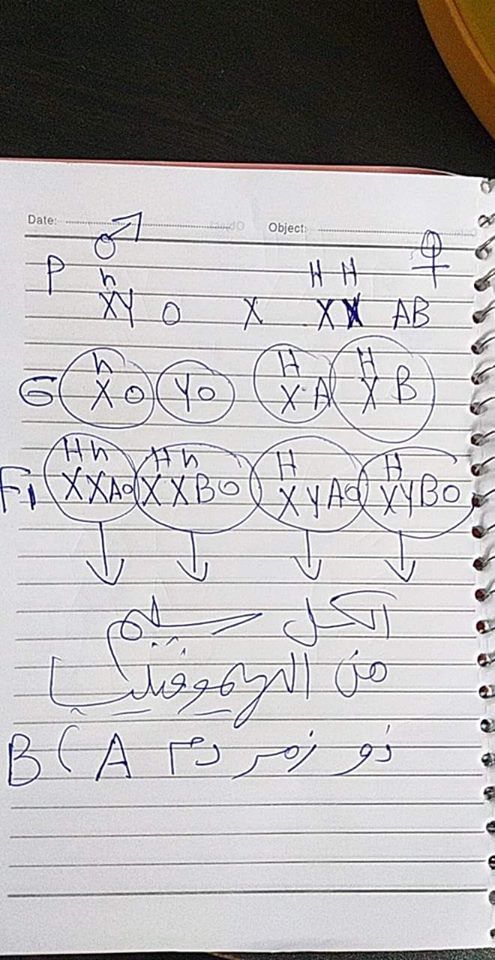 Date: Object:
♂ ♀
P XʰY O X XᴴXᴴ AB
G XʰO YO XᴴA XᴴB
F₁ XᴴXʰAO XᴴXʰBO XᴴYAO XᴴYBO
↓ ↓ ↓ ↓
الكل سليم
من الهيموفيليا
ذو زمر دم A ( B